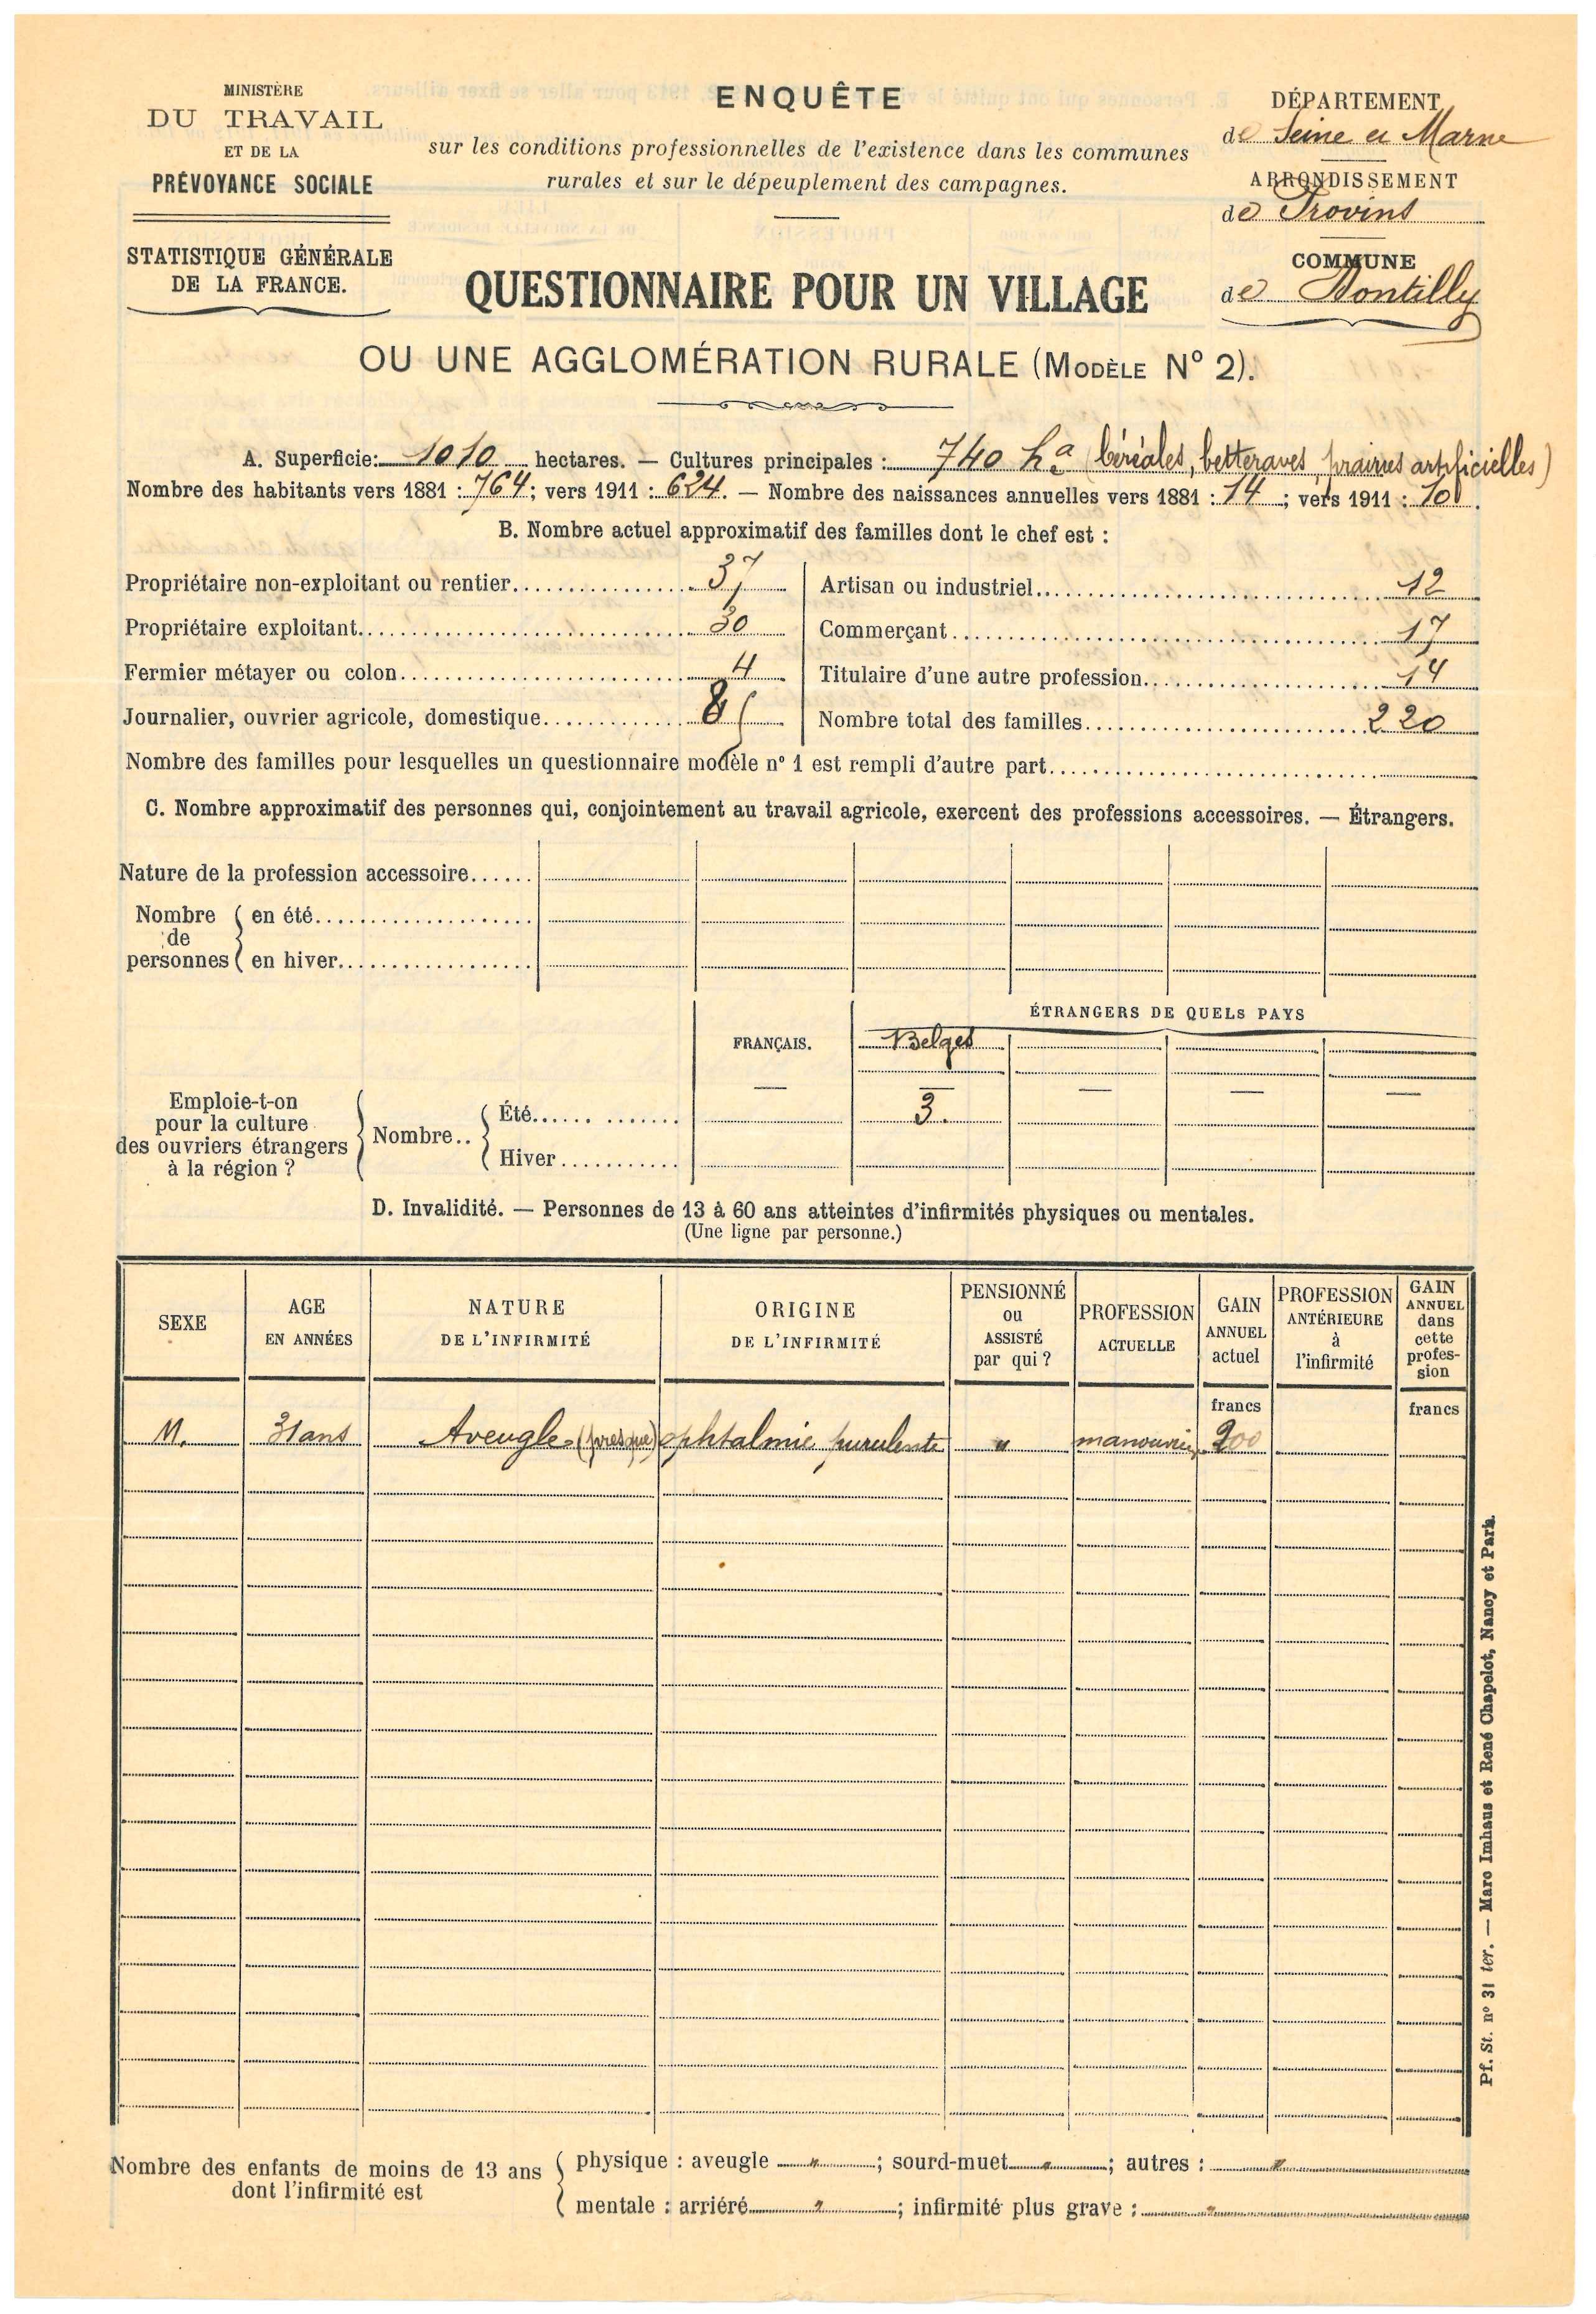 MINISTÈRE
DU TRAVAIL
ET DE LA
PRÉVOYANCE SOCIALE
STATISTIQUE GÉNÉRALE
DE LA FRANCE.
ENQUÊTE
sur les conditions professionnelles de l'existence dans les communes
rurales et sur le dépeuplement des campagnes.
DÉPARTEMENT
de Seine et Marne
ARRONDISSEMENT
de Provins
COMMUNE
de Hontilly
QUESTIONNAIRE POUR UN VILLAGE
OU UNE AGGLOMÉRATION RURALE (MODÈLE N° 2).
A. Superficie: 1010 hectares. — Cultures principales : 740 ha (céréales, betteraves, prairies artificielles)
Nombre des habitants vers 1881 : 764; vers 1911 : 624. — Nombre des naissances annuelles vers 1881 : 14 ; vers 1911 : 10.
B. Nombre actuel approximatif des familles dont le chef est :
Propriétaire non-exploitant ou rentier 37
Propriétaire exploitant 30
Fermier métayer ou colon 4
Journalier, ouvrier agricole, domestique
Artisan ou industriel 12
Commerçant 17
Titulaire d'une autre profession 14
Nombre total des familles 220
Nombre des familles pour lesquelles un questionnaire modèle n° 1 est rempli d'autre part
C. Nombre approximatif des personnes qui, conjointement au travail agricole, exercent des professions accessoires. — Étrangers.
Nature de la profession accessoire
Nombre de personnes
en été
en hiver
FRANÇAIS.
ÉTRANGERS DE QUELS PAYS
Belges
Emploie-t-on
pour la culture
des ouvriers étrangers
à la région ?
Nombre..
Été 3.
Hiver
D. Invalidité. — Personnes de 13 à 60 ans atteintes d'infirmités physiques ou mentales.
(Une ligne par personne.)
SEXE
AGE
EN ANNÉES
NATURE
DE L'INFIRMITÉ
ORIGINE
DE L'INFIRMITÉ
PENSIONNÉ
ou
ASSISTÉ
par qui ?
PROFESSION
ACTUELLE
GAIN
ANNUEL
actuel
PROFESSION
ANTÉRIEURE
à
l'infirmité
GAIN
ANNUEL
dans
cette
profes-
sion
francs francs
M. 31 ans Aveugle (presque) ophtalmie purulente " manouvrier 200
Nombre des enfants de moins de 13 ans
dont l'infirmité est
physique : aveugle " ; sourd-muet " ; autres : "
mentale : arriéré " ; infirmité plus grave : "
Pf. St. n° 31 ter. — Marc Imhaus et René Chapelot, Nancy et Paris.